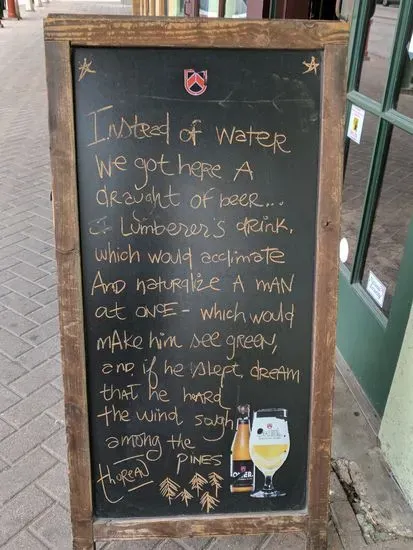 Instead of Water
We got here A
draught of beer...
A Lumberer's drink,
which would acclimate
And naturalize A MAN
at ONCE - which would
MAke him see green,
and if he slept, dream
thAt he heard
the wind sough
among the
PINES
thoreau